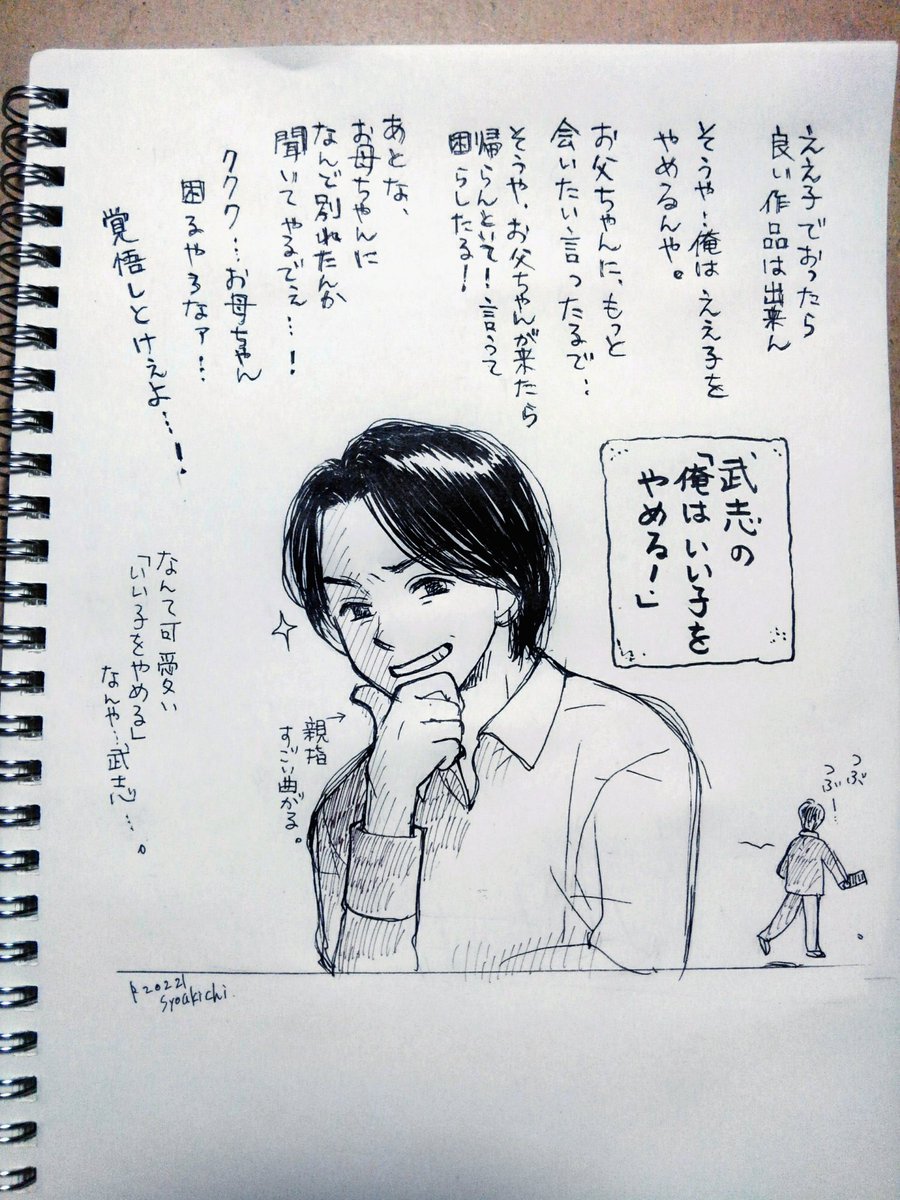 ええ子でおったら
良い作品は出来ん
そうや…俺はええ子を
やめるんや。
お父ちゃんに、もっと
会いたい言ったるで…
そうや、お父ちゃんが来たら
帰らんといて！言うって
困らしたる！
あとな、
お母ちゃんに
なんで別れたんか
聞いてやるでえ…！
ククク…お母ちゃん
困るやろなァ…
覚悟しとけえよ…！
武志の
「俺はいい子を
やめる！」
なんて可愛い
「いい子をやめる」
なんや…武志…。
親指
すごい曲がる。
つぶ
つぶ…
2022
syoukichi